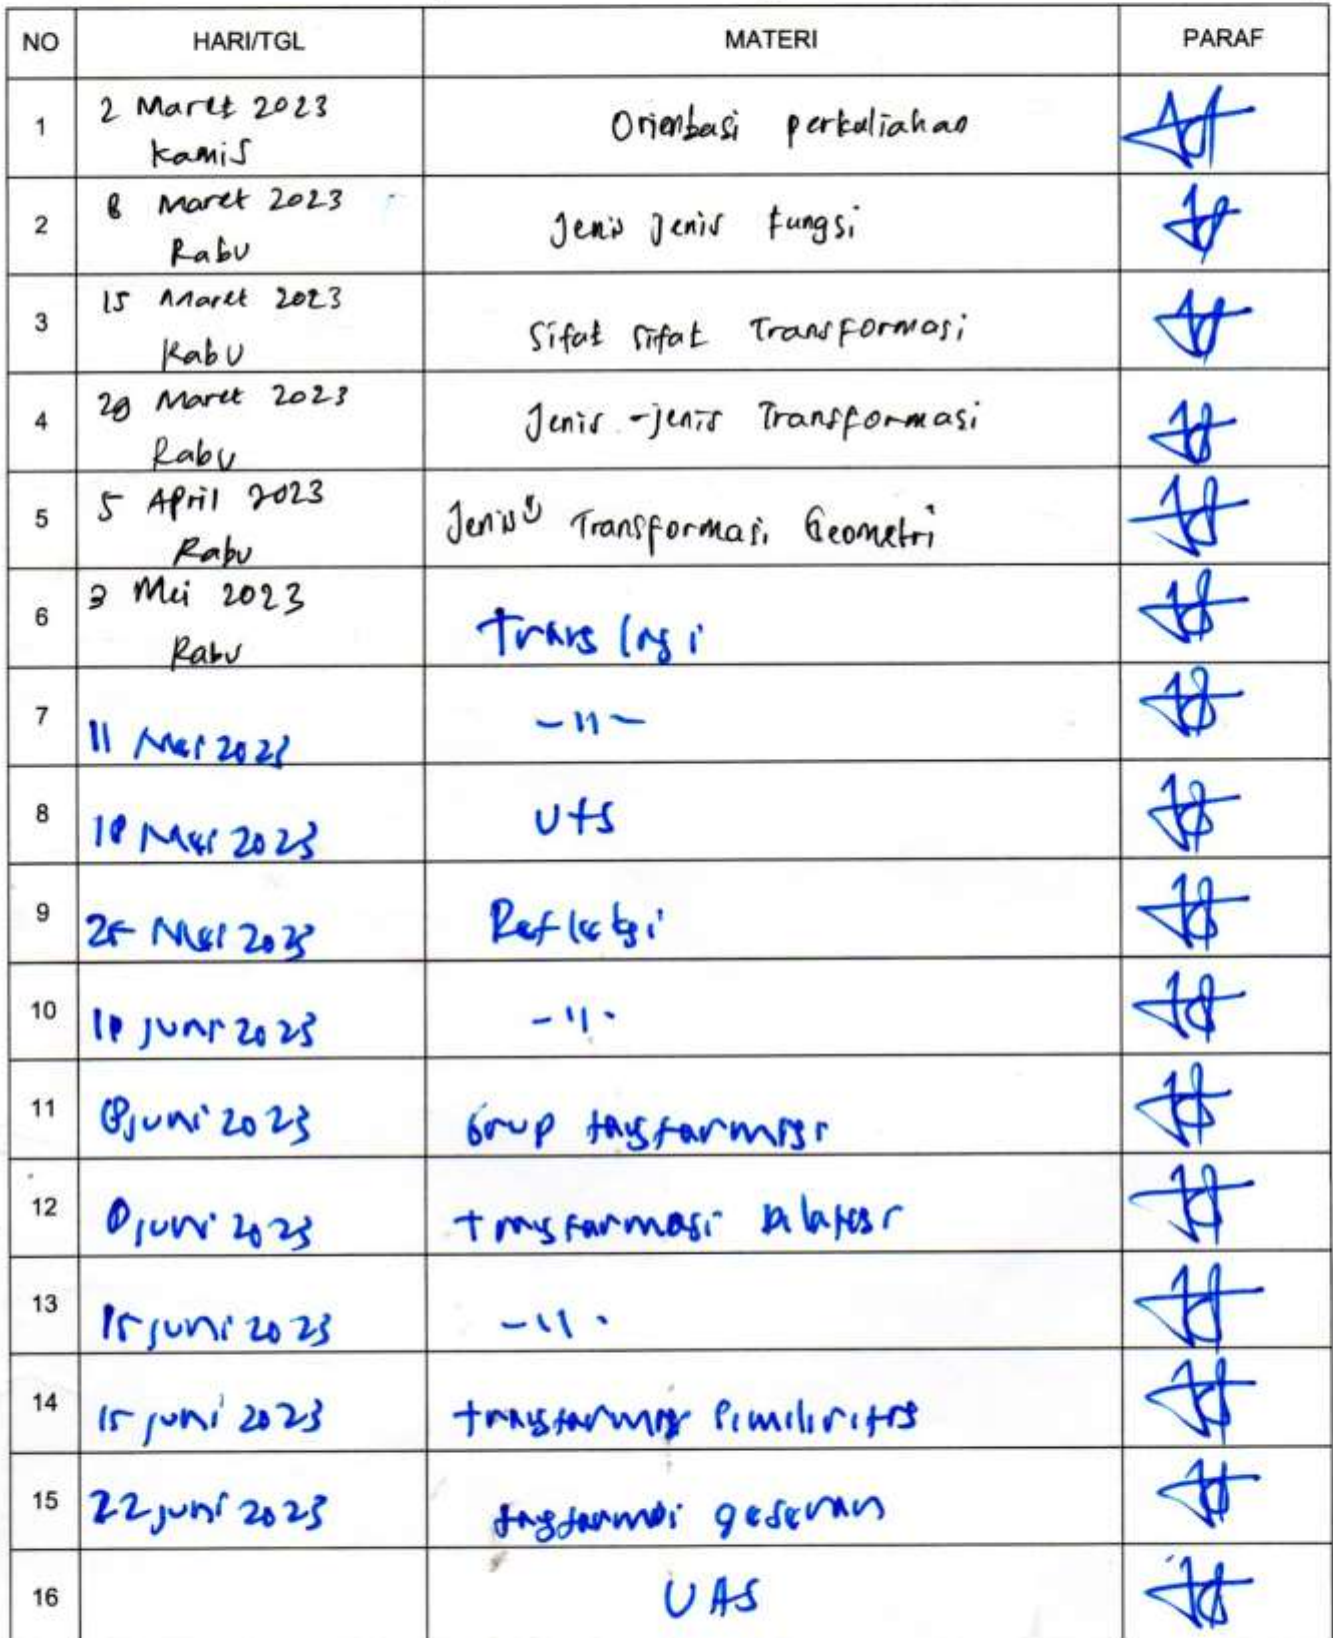 NO HARI/TGL MATERI PARAF
1 2 Maret 2023 Orientasi perkuliahan
Kamis
2 8 Maret 2023 Jenis Jenis Fungsi
Rabu
3 15 Maret 2023 Sifat Sifat Transformasi
Rabu
4 29 Maret 2023 Jenis-jenis Transformasi
Rabu
5 5 April 2023 Jenis" Transformasi Geometri
Rabu
6 3 Mei 2023 Translasi
Rabu
7 11 Mei 2023 -11-
8 18 Mei 2023 UTS
9 25 Mei 2023 Refleksi
10 Juni 2023 -11-
11 Juni 2023 Grup transformasi
12 Juni 2023 transformasi dilatasi
13 15 Juni 2023 -11-
14 15 juni 2023 transformasi similiritas
15 22 juni 2023 transformasi geseran
16 UAS